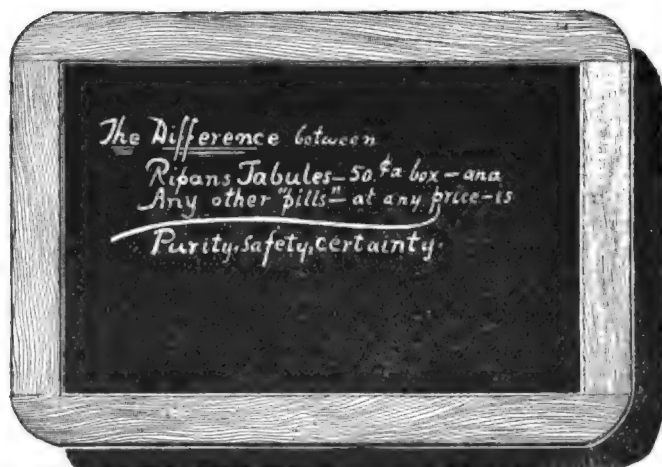 The Difference between
Ripans Tabules–50.¢ a box–and
Any other "pills"–at any price–is
Purity, safety, certainty.